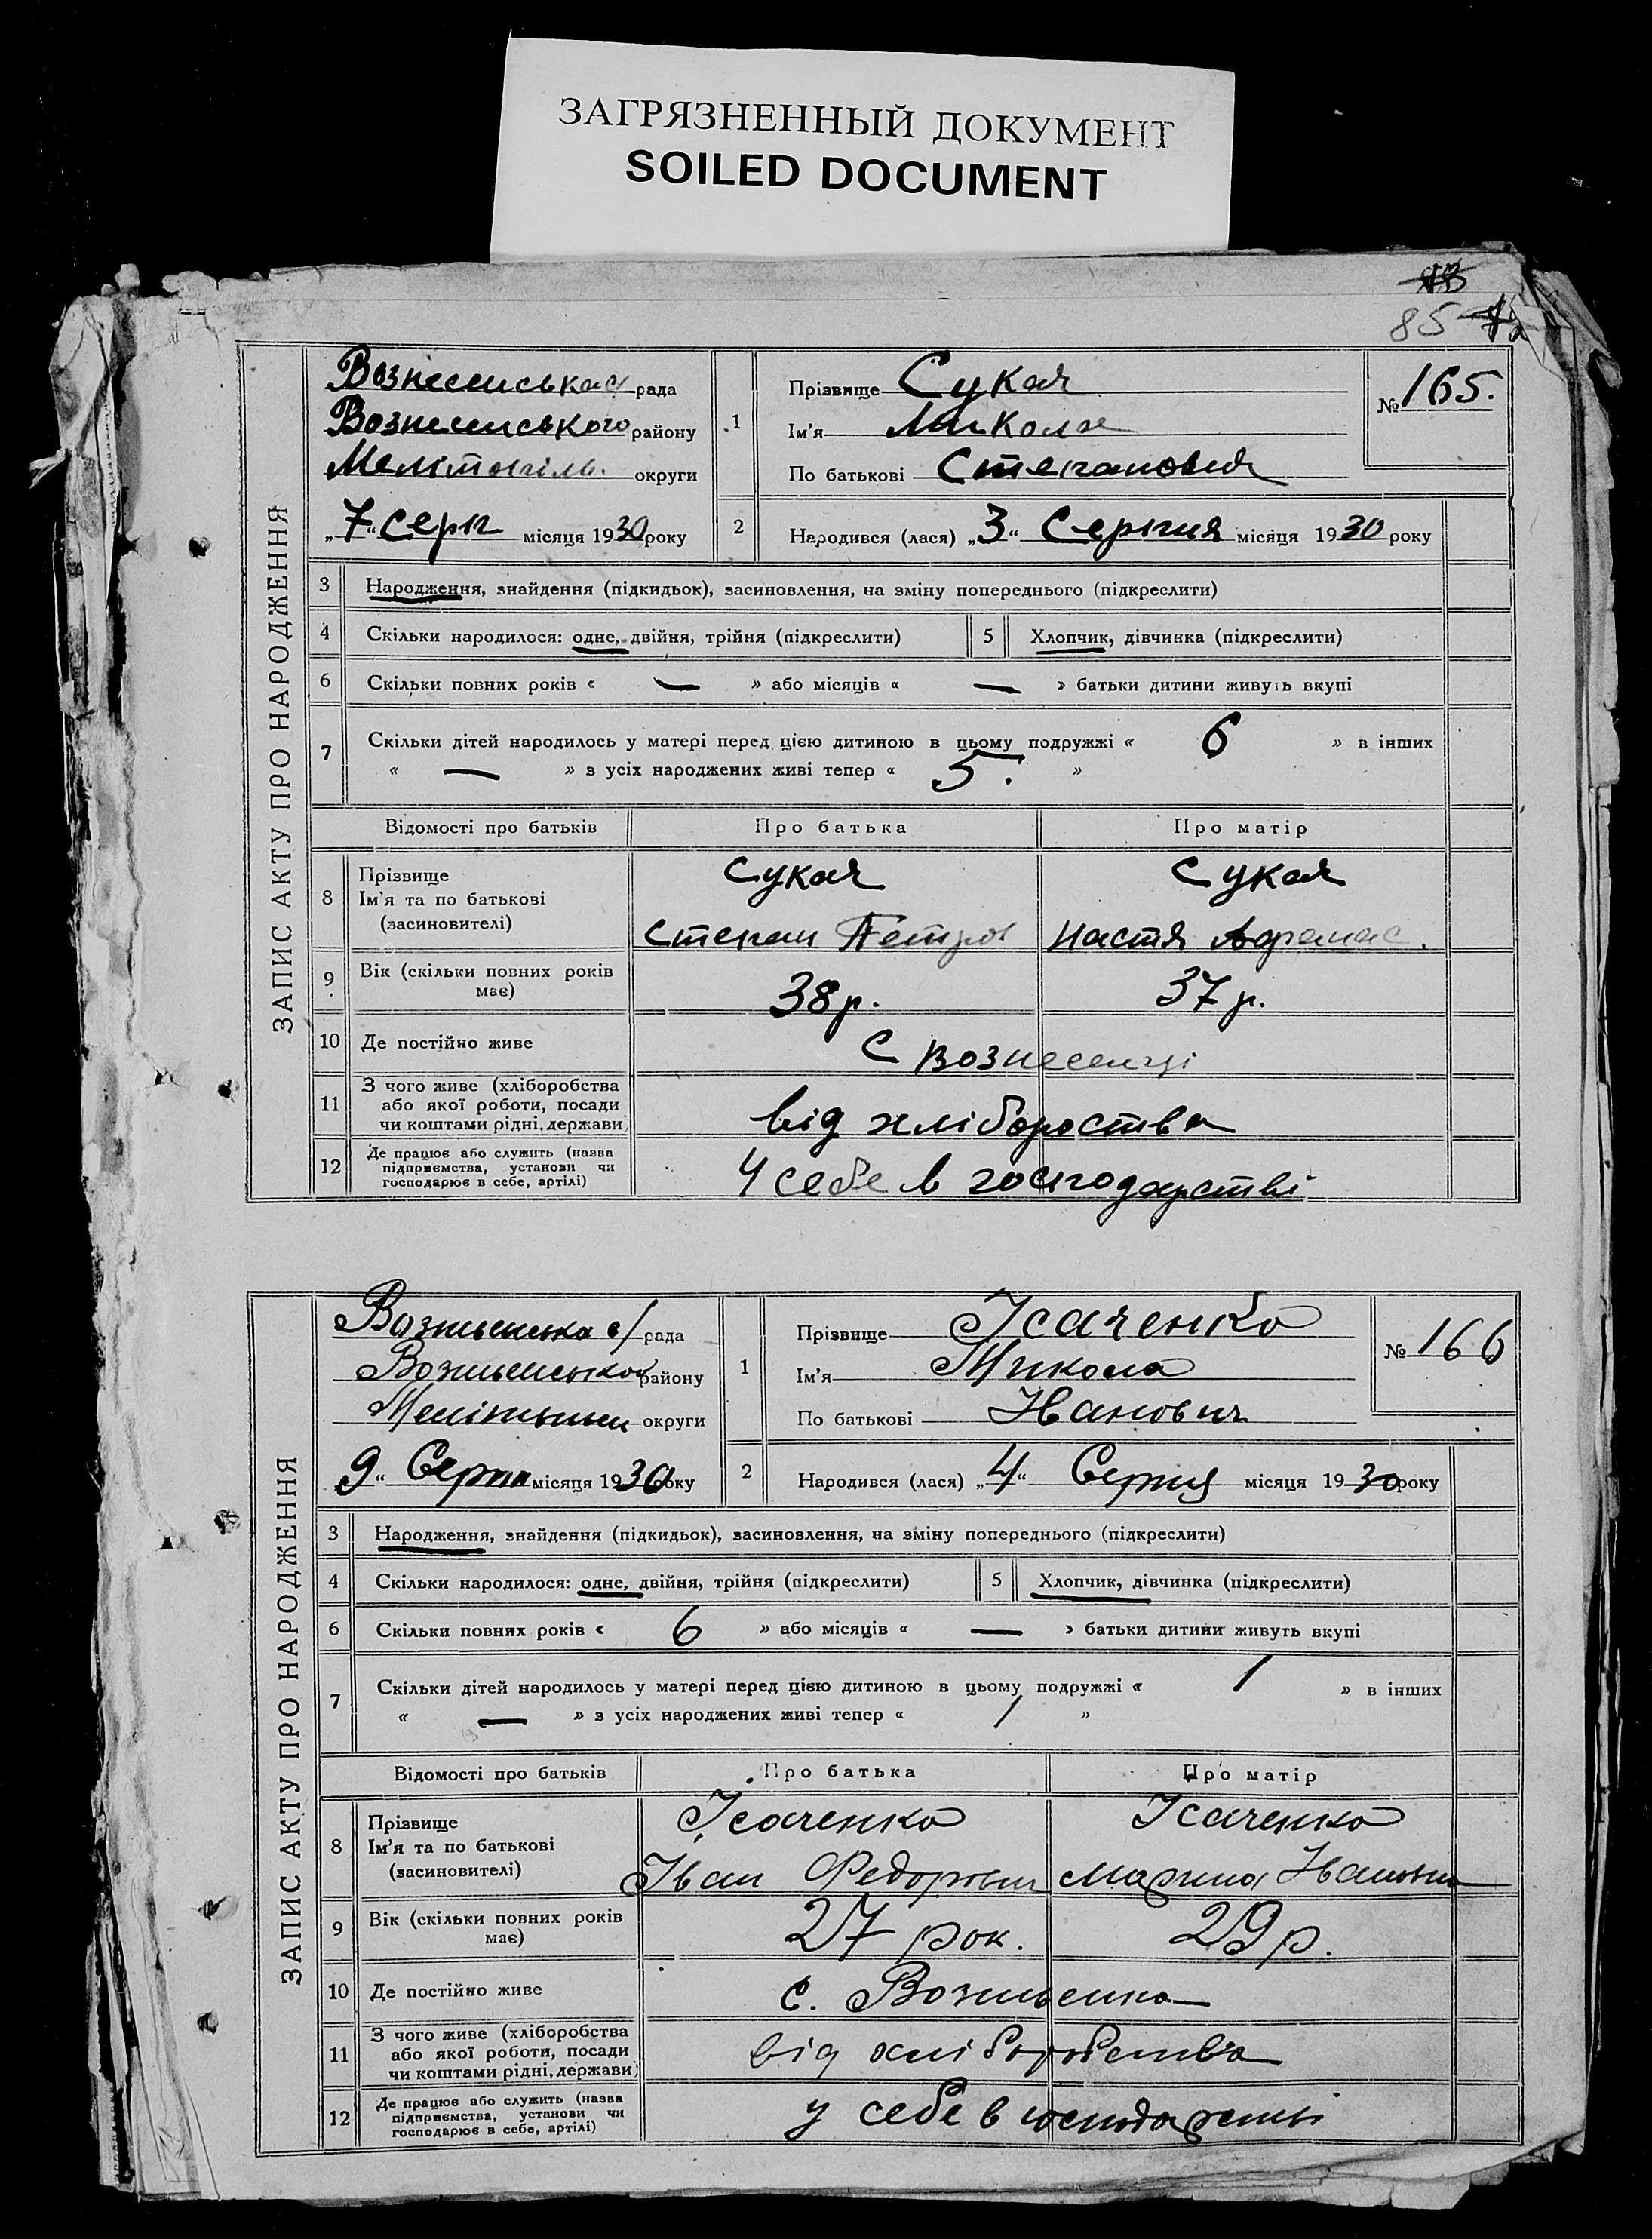 ЗАГРЯЗНЕННЫЙ ДОКУМЕНТ
SOILED DOCUMENT
85
ЗАПИС АКТУ ПРО НАРОДЖЕННЯ
Вознесенська рада
Вознесенського району
Мелітопіль. округи
„7“ Серп місяця 1930 року
1
Прізвище Сукач
Ім'я Микола
По батькові Степанович
№ 165.
2 Народився (лася) „3“ Серпня місяця 1930 року
3 Народження, знайдення (підкидьок), засиновлення, на зміну попереднього (підкреслити)
4 Скільки народилося: одне, двійня, трійня (підкреслити) 5 Хлопчик, дівчинка (підкреслити)
6 Скільки повних років « — » або місяців « — » батьки дитини живуть вкупі
7 Скільки дітей народилось у матері перед цією дитиною в цьому подружжі « 6 » в інших
« — » з усіх народжених живі тепер « 5. »
Відомості про батьків Про батька Про матір
8 Прізвище
Ім'я та по батькові
(засиновителі)
Сукач Сукач
Степан Петров Настя Афанас.
9 Вік (скільки повних років має) 38 р. 37 р.
10 Де постійно живе С Вознесенці
11 З чого живе (хліборобства
або якої роботи, посади
чи коштами рідні, держави
від хлібороства
12 Де працює або служить (назва
підприємства, установи чи
господарює в себе, артілі)
У себе в господарстві
ЗАПИС АКТУ ПРО НАРОДЖЕННЯ
Вознесенська с/ рада
району
округи
9“ Серпня місяця 1930 року
1
Прізвище Ісаченко
Ім'я Микола
По батькові Іванович
№ 166
2 Народився (лася) „4“ Серпня місяця 1930 року
3 Народження, знайдення (підкидьок), засиновлення, на зміну попереднього (підкреслити)
4 Скільки народилося: одне, двійня, трійня (підкреслити) 5 Хлопчик, дівчинка (підкреслити)
6 Скільки повних років « 6 » або місяців « — » батьки дитини живуть вкупі
7 Скільки дітей народилось у матері перед цією дитиною в цьому подружжі « 1 » в інших
« — » з усіх народжених живі тепер « 1 »
Відомості про батьків Про батька Про матір
8 Прізвище
Ім'я та по батькові
(засиновителі)
Ісаченко Ісаченко
Іван Федорович Марина Івановна
9 Вік (скільки повних років має) 27 рок. 29 р.
10 Де постійно живе с. Вознесенка
11 З чого живе (хліборобства
або якої роботи, посади
чи коштами рідні, держави)
від хліборобства
12 Де працює або служить (назва
підприємства, установи чи
господарює в себе, артілі)
у себе в господарстві